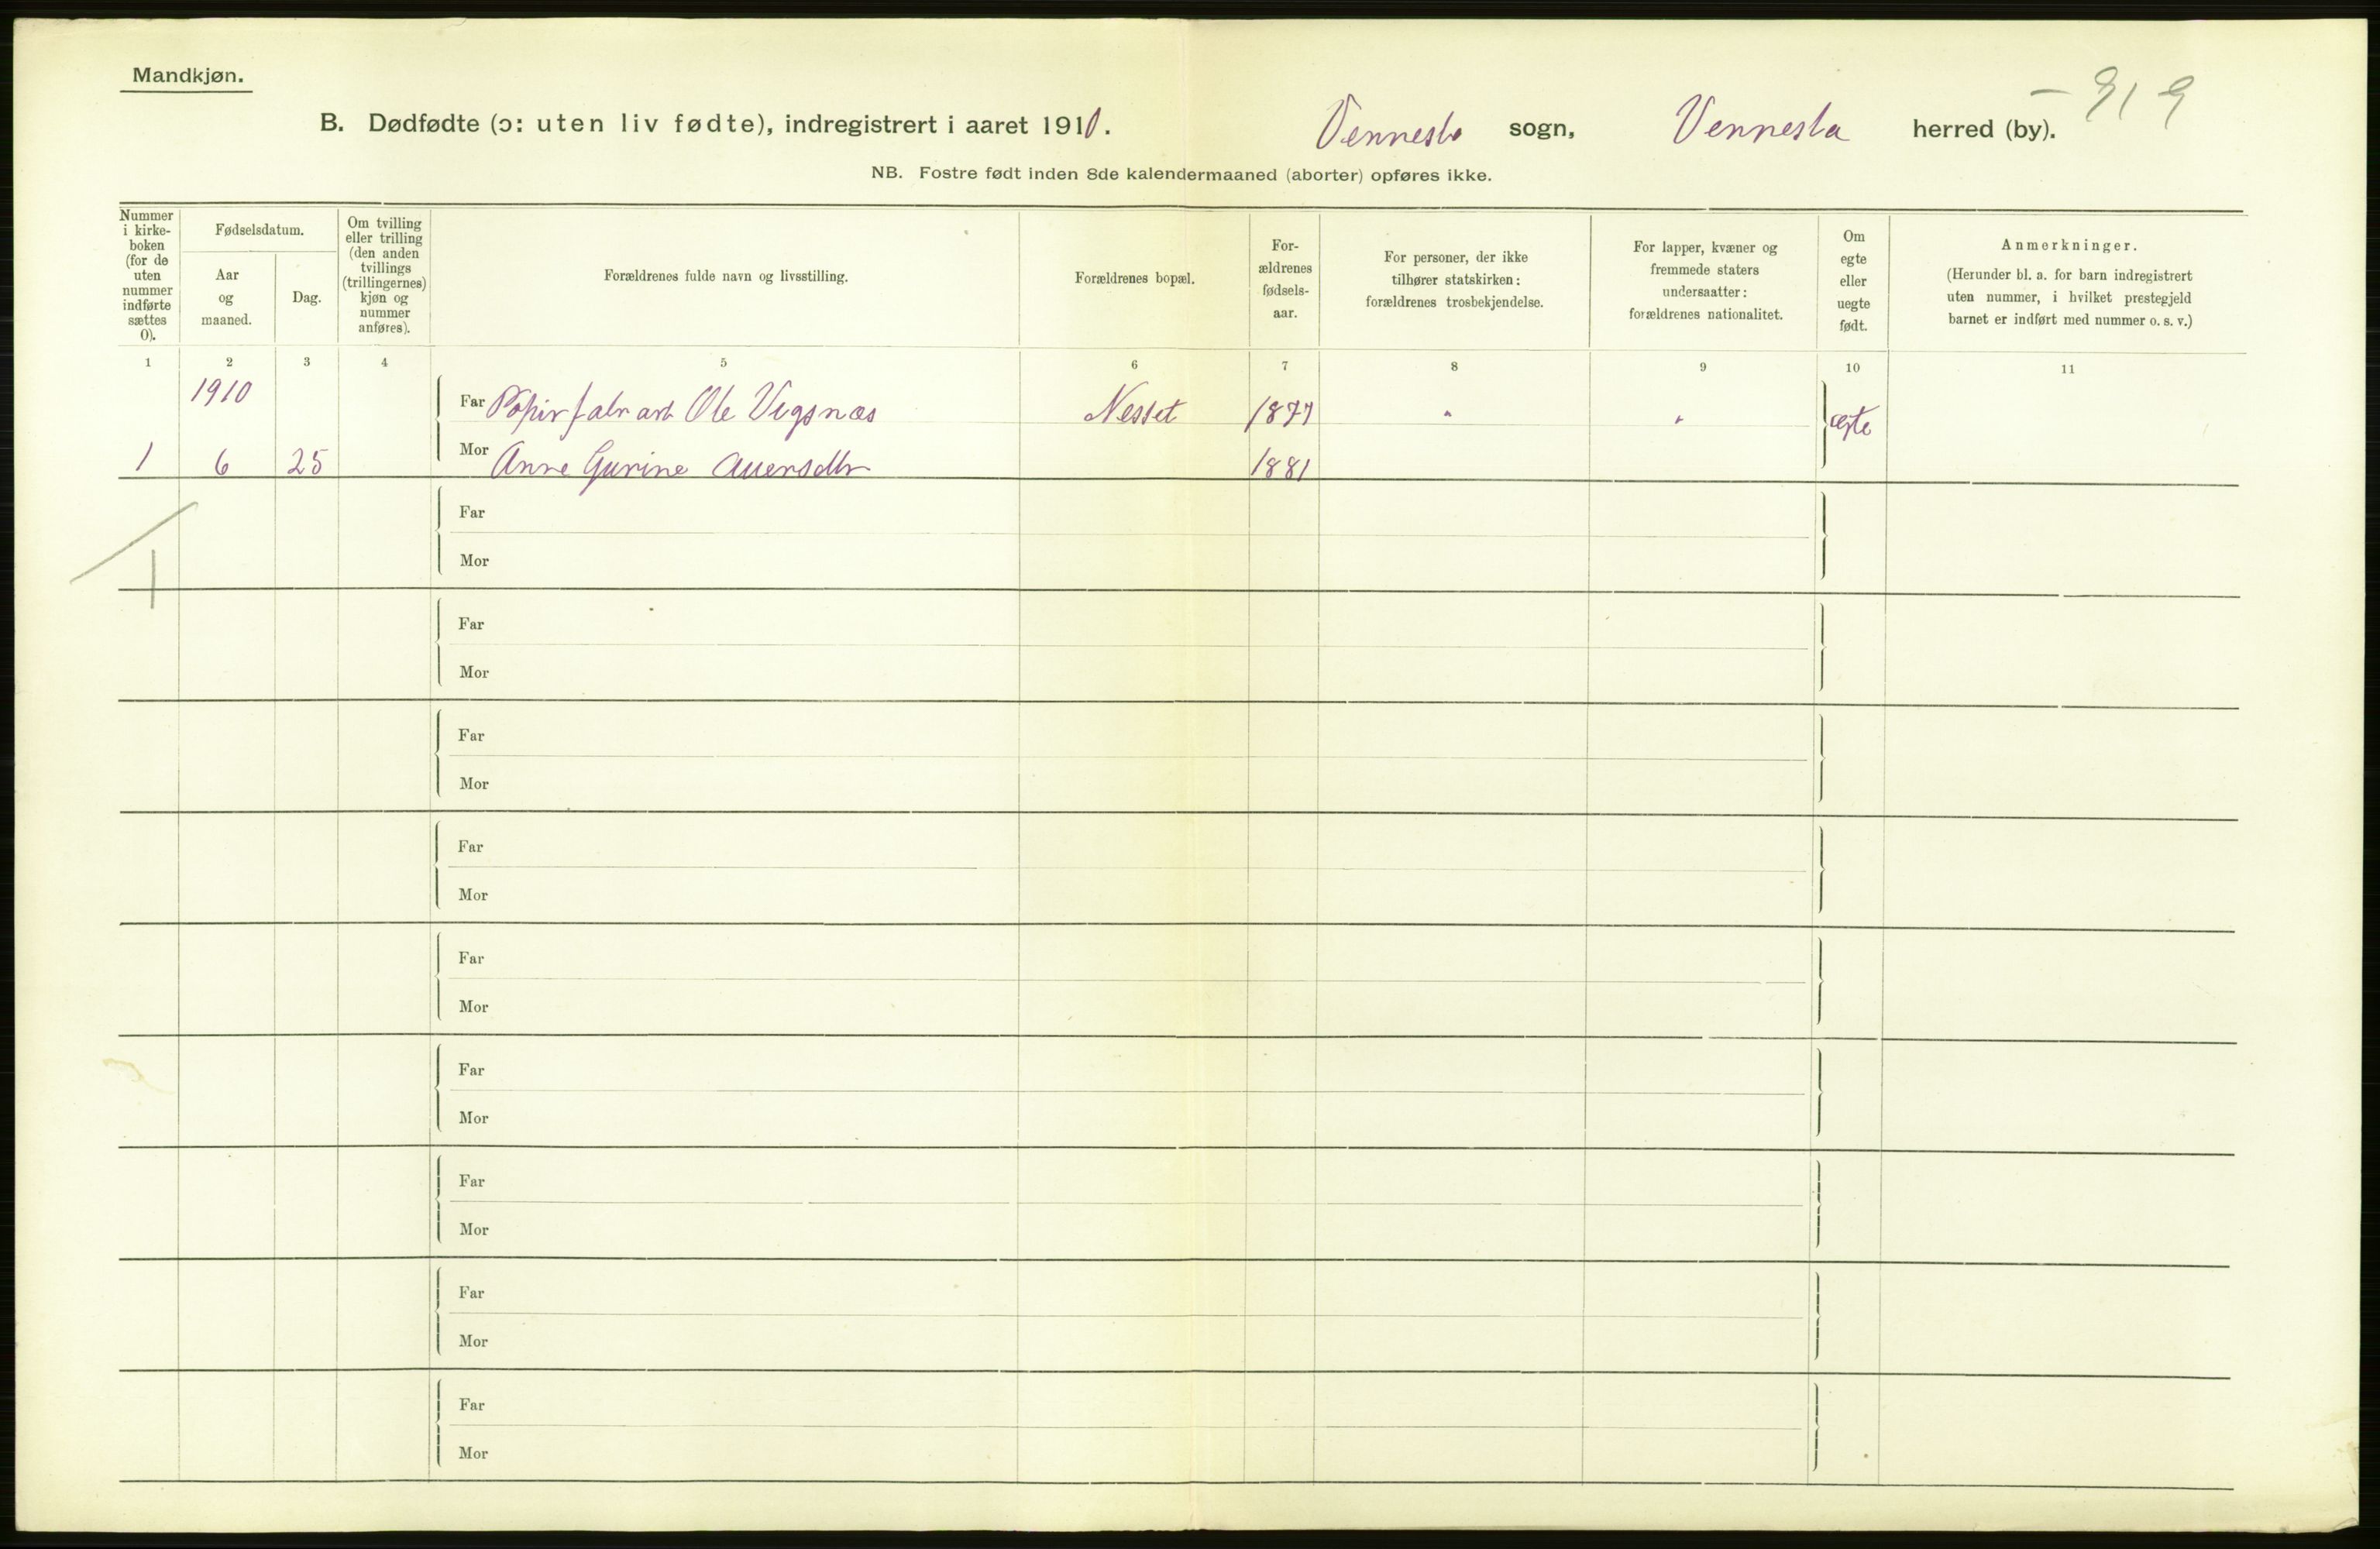 Mandkjøn.
B. Dødfødte (ɔ: uten liv fødte), indregistrert i aaret 1910. Vennesla sogn, Vennesla herred (by). – 919
NB. Fostre født inden 8de kalendermaaned (aborter) opføres ikke.
Nummer
i kirke-
boken
(for de
uten
nummer
indførte
sættes
0).
Fødselsdatum.
Aar
og
maaned.
Dag.
Om tvilling
eller trilling
(den anden
tvillings
(trillingernes)
kjøn og
nummer
anføres).
Forældrenes fulde navn og livsstilling.
Forældrenes bopæl.
For-
ældrenes
fødsels-
aar.
For personer, der ikke
tilhører statskirken:
forældrenes trosbekjendelse.
For lapper, kvæner og
fremmede staters
undersaatter:
forældrenes nationalitet.
Om
egte
eller
uegte
født.
Anmerkninger.
(Herunder bl. a. for barn indregistrert
uten nummer, i hvilket prestegjeld
barnet er indført med nummer o. s. v.)
1 2 3 4 5 6 7 8 9 10 11
1910 Far Papirfabr arb Ole Vigsnæs Nesset 1877 " " egte
1 6 25 Mor Anne Gurine Auensdtr 1881
Far
1
Mor
Far
Mor
Far
Mor
Far
Mor
Far
Mor
Far
Mor
Far
Mor
Far
Mor
Far
Mor